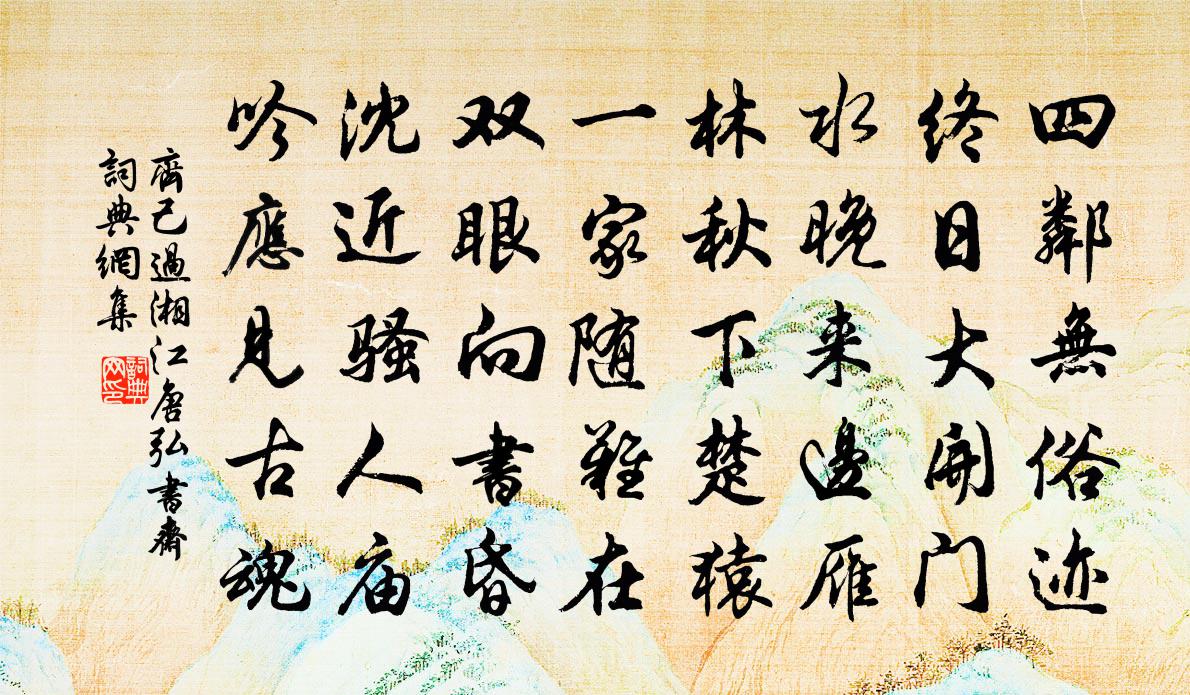 四鄰無俗迹
终日大開门
水晚来邊雁
林秋下楚猿
一家随難在
双眼向書昏
沈近骚人庙
吟應見古魂
齊己過湘江唐弘書齋
詞典網集
詞典
网印